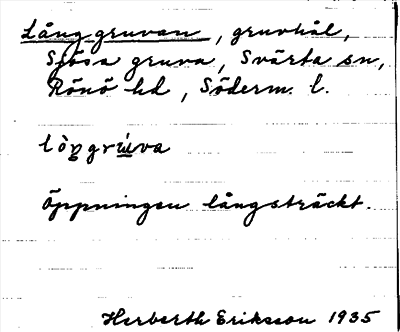 Långgruvan, gruvhål,
Sjösa gruva, Svärta sn,
Rönö hd, Söderm. l.
Öppningen långsträckt.
Herberth Eriksson 1935